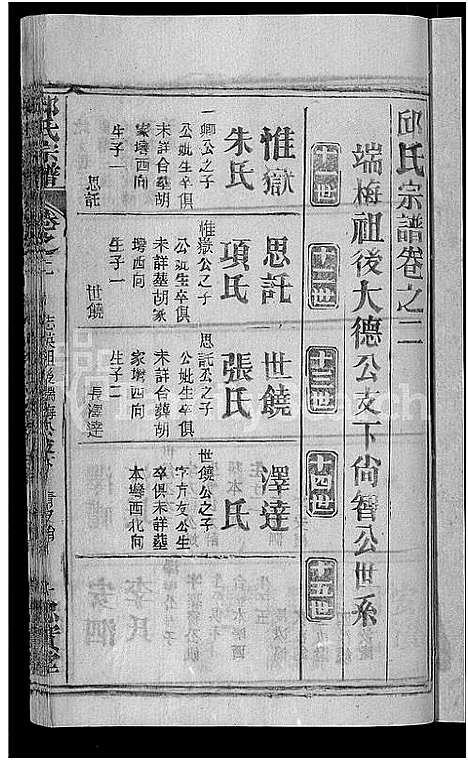 邱氏宗譜卷之二
端梅祖後大德公支下尙智公世系
十一世
十二世
十三世
十四世
十五世
惟嶽
朱氏
一卿公之子
公妣生卒俱
未詳合墓胡
家墩西向
生子一
思託
思託
項氏
惟嶽公之子
公妣生卒俱
未詳墓胡家
墩西向
生子一
世饒
世饒
張氏
思託公之子
公妣生卒俱
未詳合葬胡
家墩西向
生子二
長澤達
澤達
氏
世饒公之子
字 友公生
卒俱未詳墓
本墩西北向
邱氏宗譜
卷之二